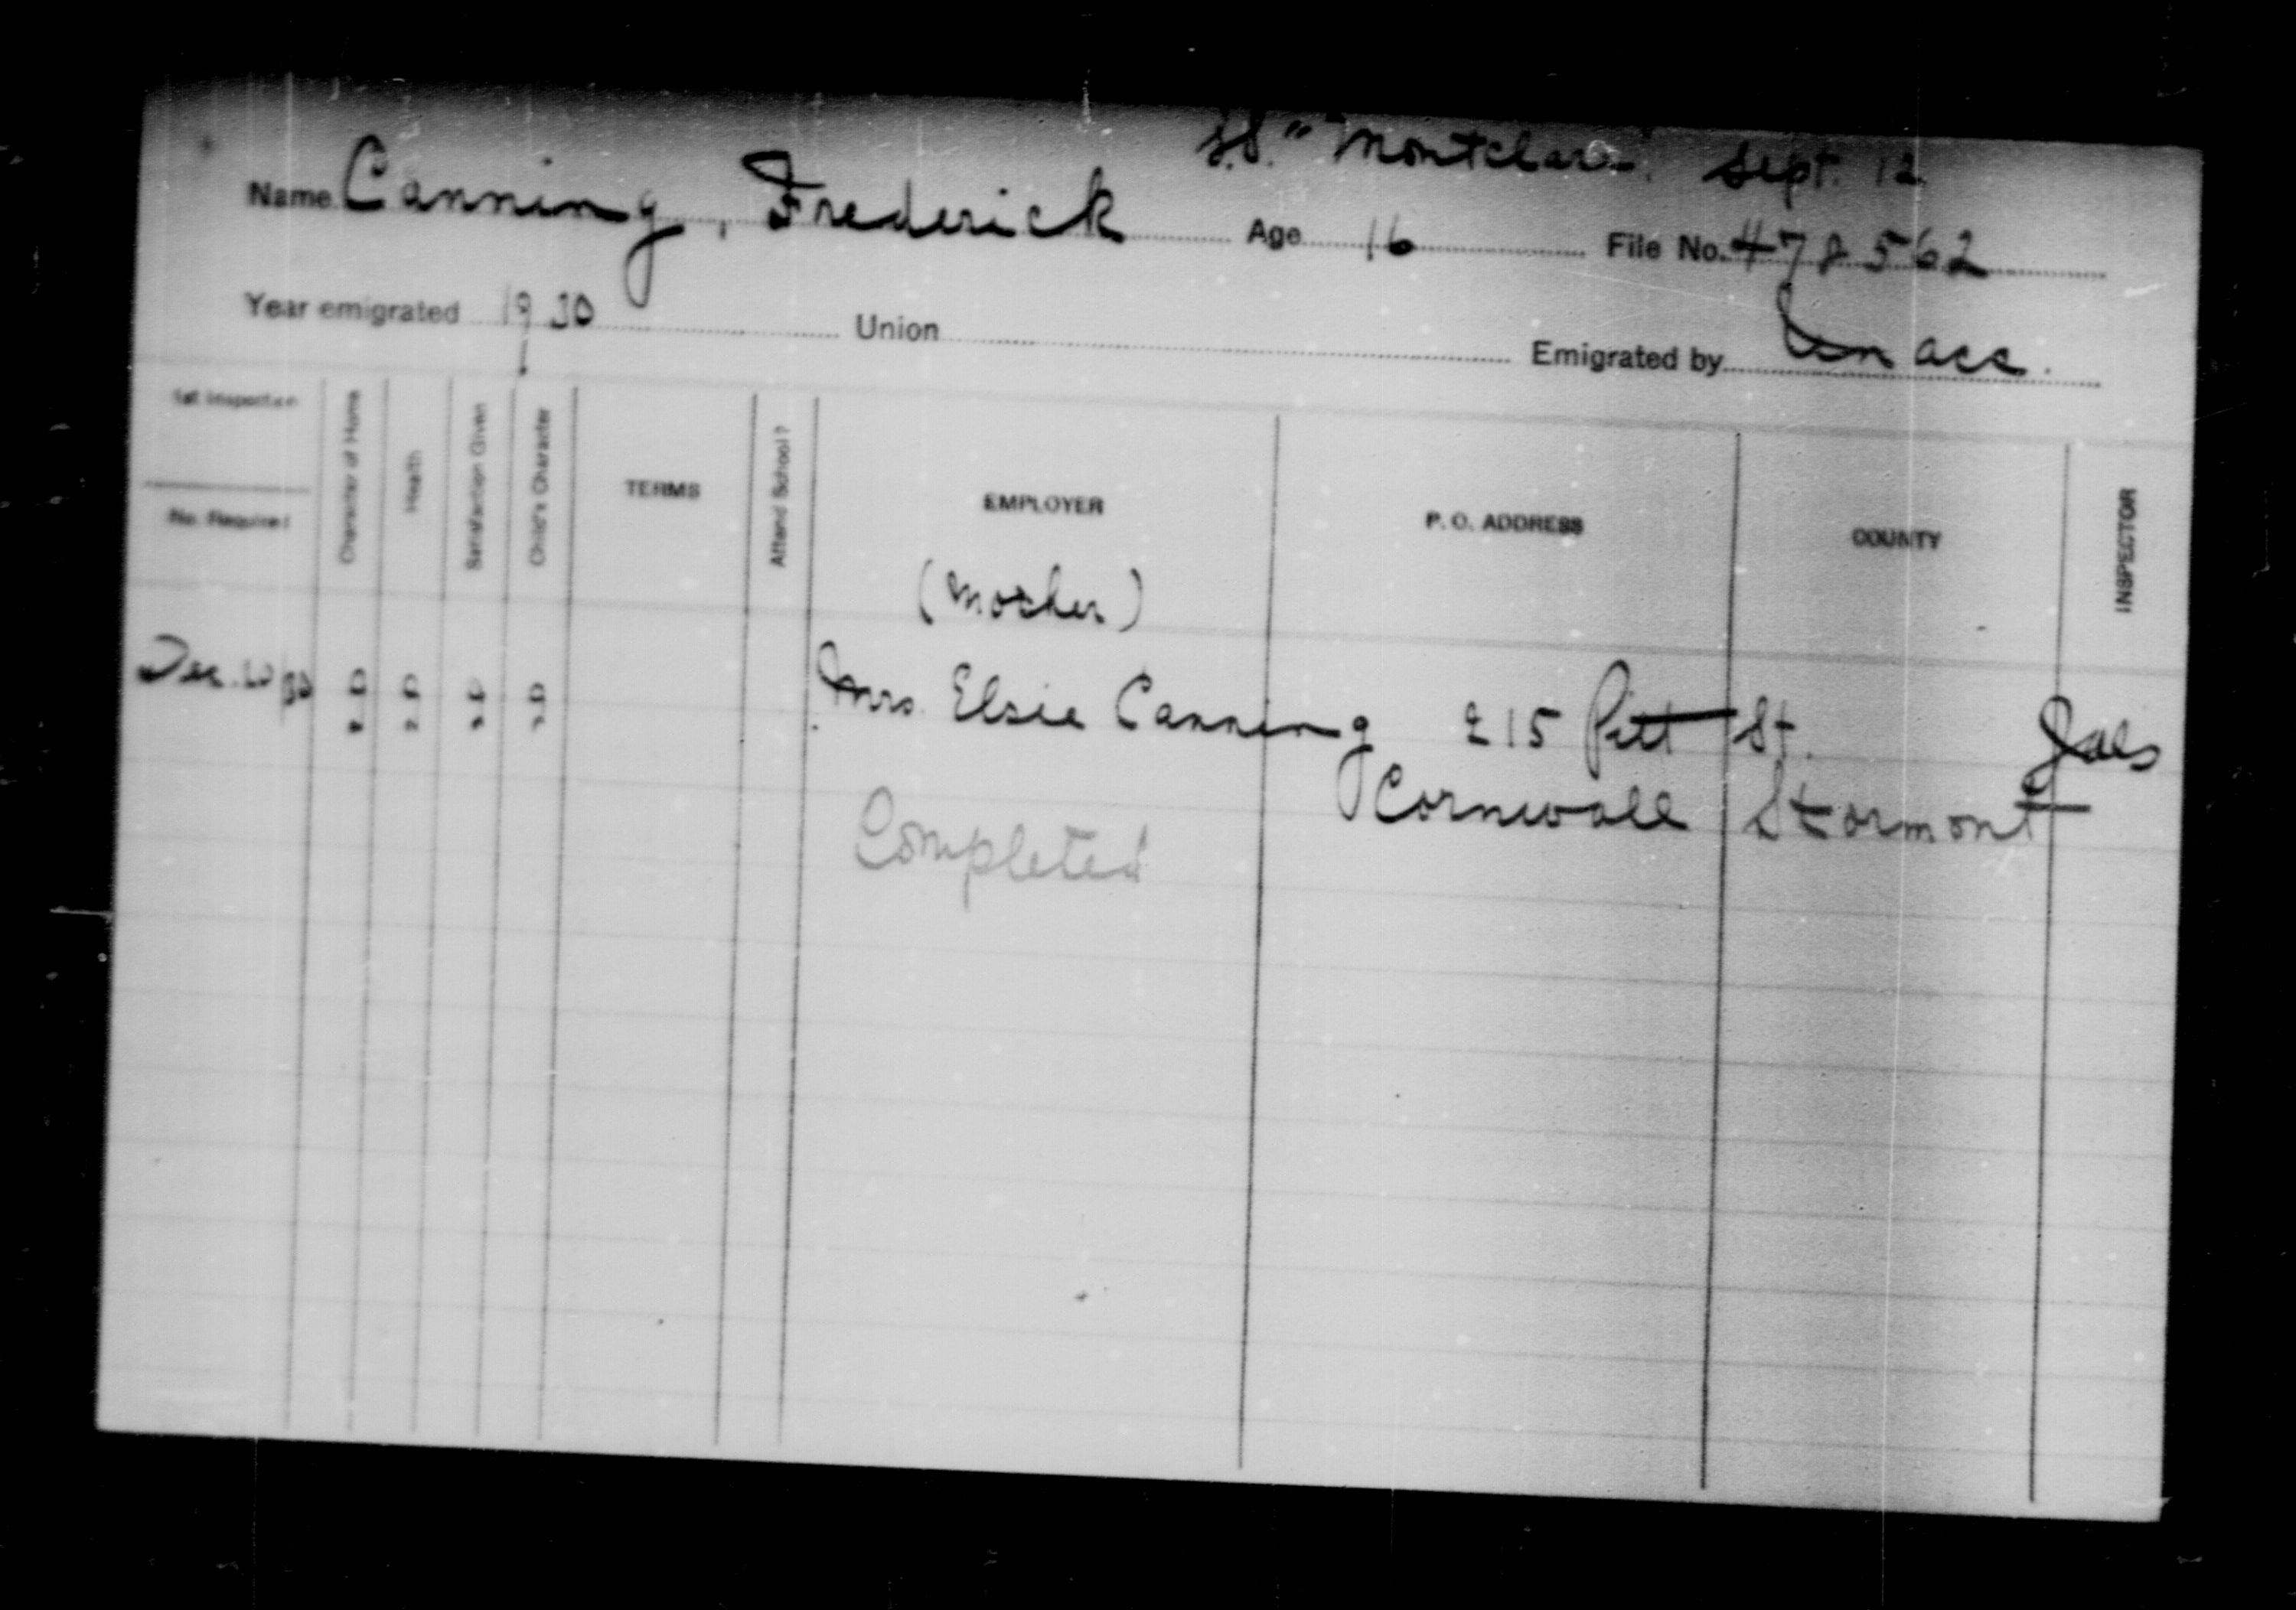 S.S. "Montclare. Sept. 12
Name Canning, Frederick Age 16 File No. 478562
Year emigrated 1930 Union Emigrated by Unacc.
1st Inspection
No. Required
Character of Home
Health
Satisfaction Given
Child's Character
TERMS
Attend School?
EMPLOYER
P. O. ADDRESS
COUNTY
INSPECTOR
(Mother)
Dec. 30 Mrs Elsie Canning 215 Pitt St.
Cornwall Stormont
Completed